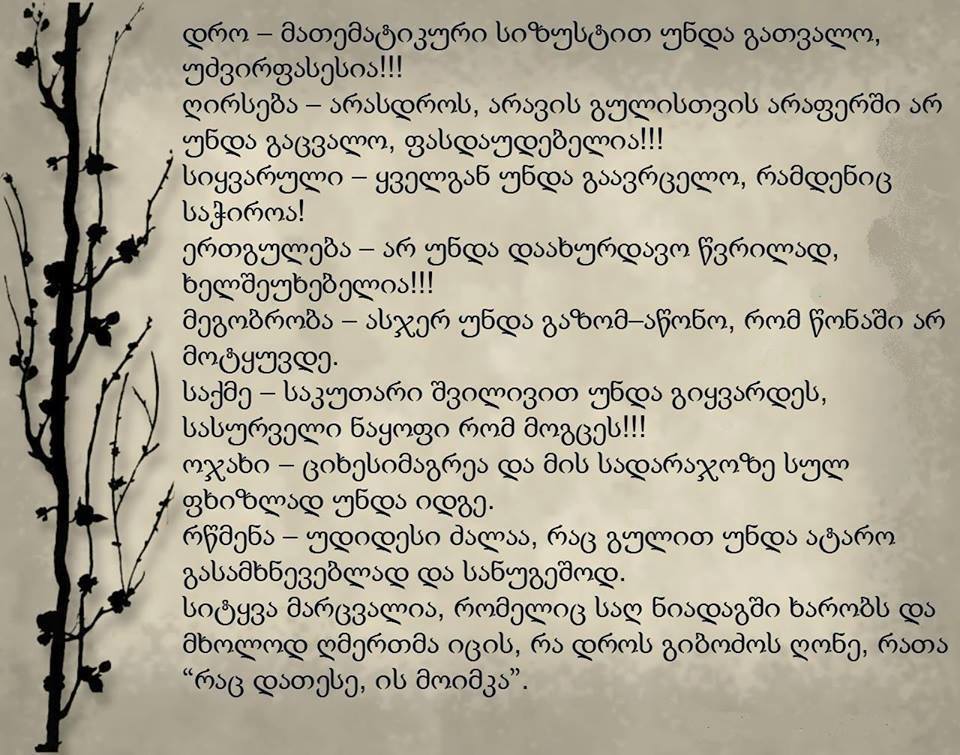 დრო – მათემატიკური სიზუსტით უნდა გათვალო,
უძვირფასესია!!!
ღირსება – არასდროს, არავის გულისთვის არაფერში არ
უნდა გაცვალო, ფასდაუდებელია!!!
სიყვარული – ყველგან უნდა გაავრცელო, რამდენიც
საჭიროა!
ერთგულება – არ უნდა დაახურდავო წვრილად,
ხელშეუხებელია!!!
მეგობრობა – ასჯერ უნდა გაზომ–აწონო, რომ წონაში არ
მოტყუვდე.
საქმე – საკუთარი შვილივით უნდა გიყვარდეს,
სასურველი ნაყოფი რომ მოგცეს!!!
ოჯახი – ციხესიმაგრეა და მის სადარაჯოზე სულ
ფხიზლად უნდა იდგე.
რწმენა – უდიდესი ძალაა, რაც გულით უნდა ატარო
გასამხნევებლად და სანუგეშოდ.
სიტყვა მარცვალია, რომელიც საღ ნიადაგში ხარობს და
მხოლოდ ღმერთმა იცის, რა დროს გიბოძოს ღონე, რათა
“რაც დათესე, ის მოიმკა”.